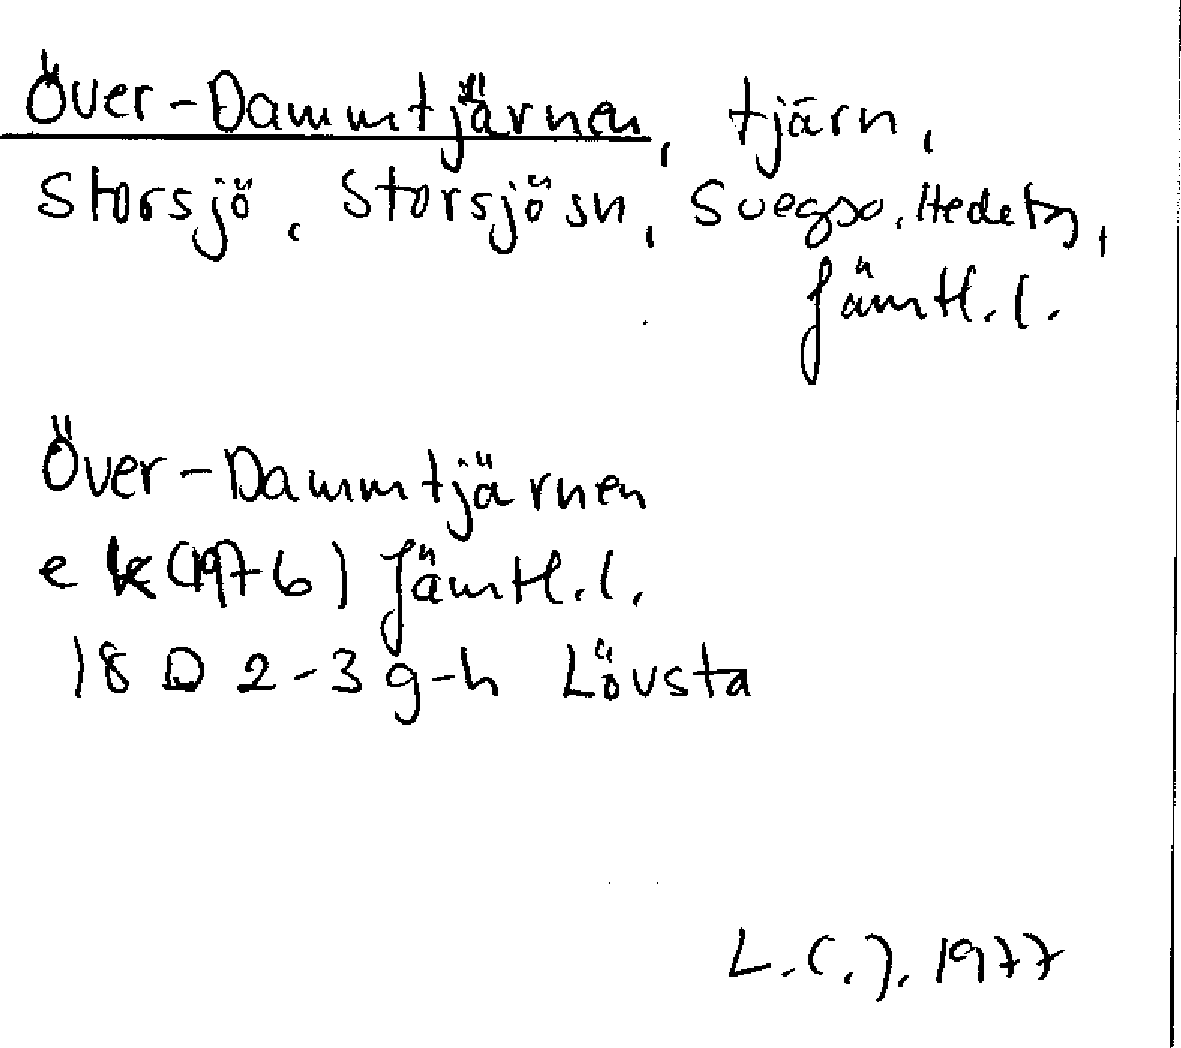 Över-Dammtjärnen, tjärn,
Storsjö, Storsjösn, Svegso, Hedetg,
Jämtl.l.
Över-Dammtjärnen
e k (1976) Jämtl.l.
18 D 2-3 g-h Lövsta
L.C.J. 1977